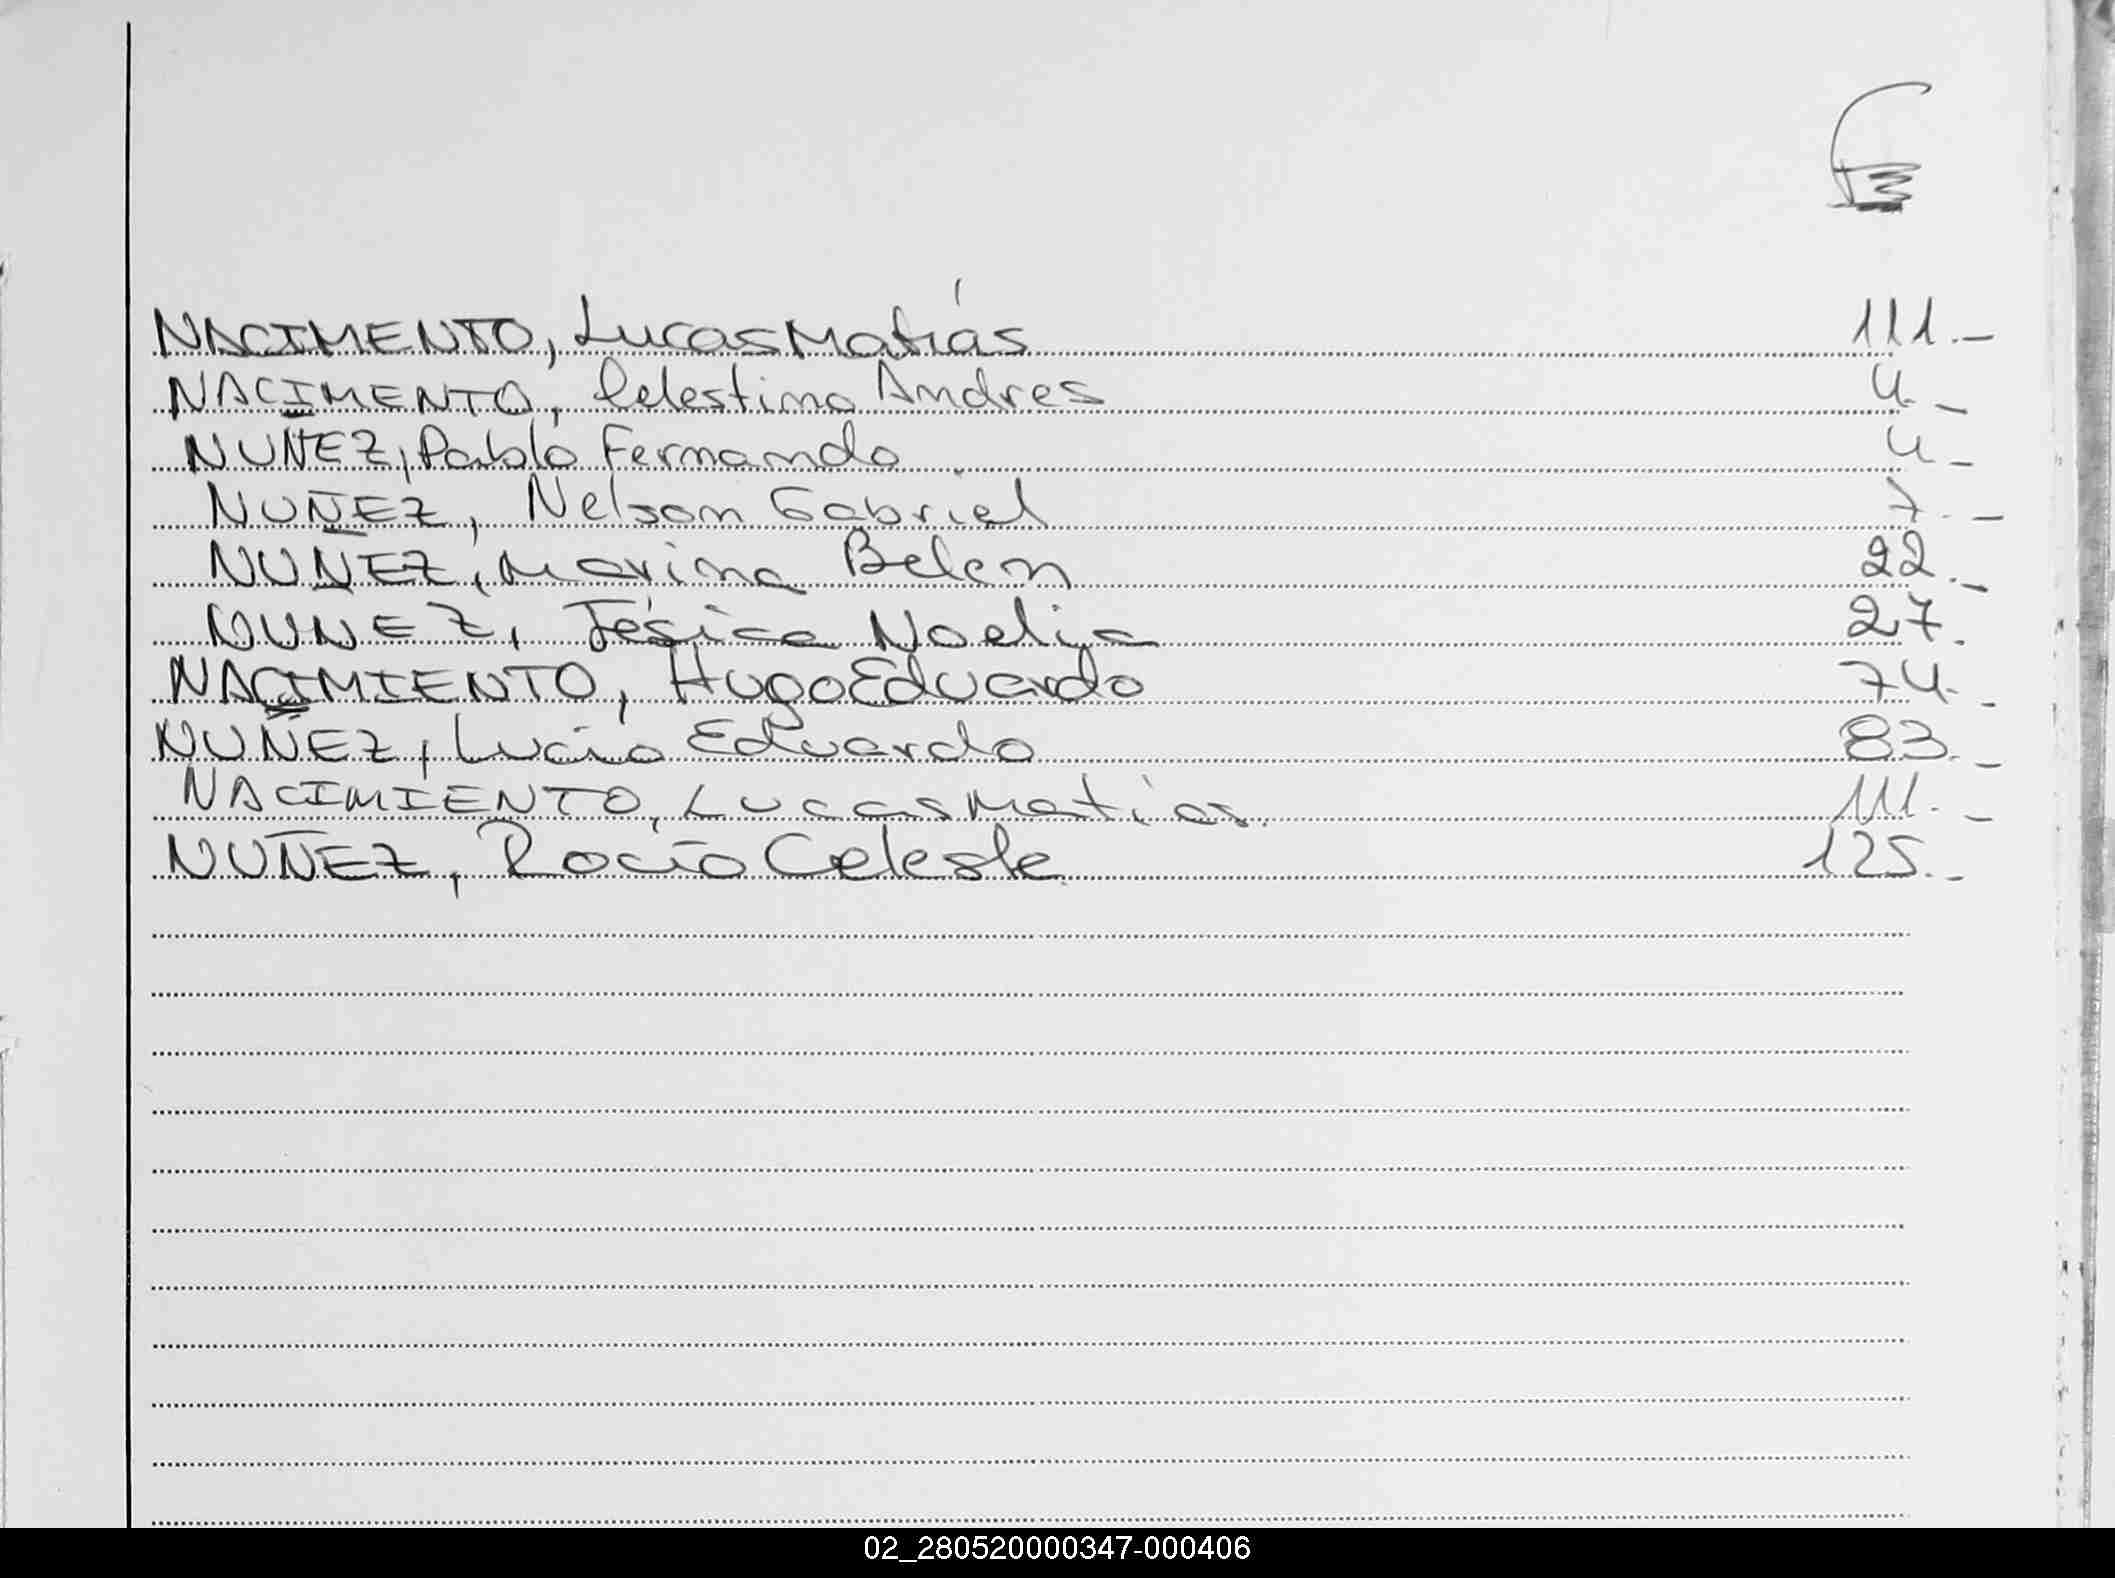 NACIMENTO, Lucas Matías 111.-
NACIMENTO, Celestino Andres 4.-
NUÑEZ, Pablo Fernando 4-
NUÑEZ, Nelson Gabriel 7.-
NUÑEZ, Marina Belen 22.-
NUNEZ, Jésica Noelia 27.
NACIMIENTO, Hugo Eduardo 74.-
NUÑEZ, Lucio Eduardo 83.-
NACIMIENTO, Lucas Matias. 111.-
NUÑEZ, Rocío Celeste 125.-
02_280520000347-000406